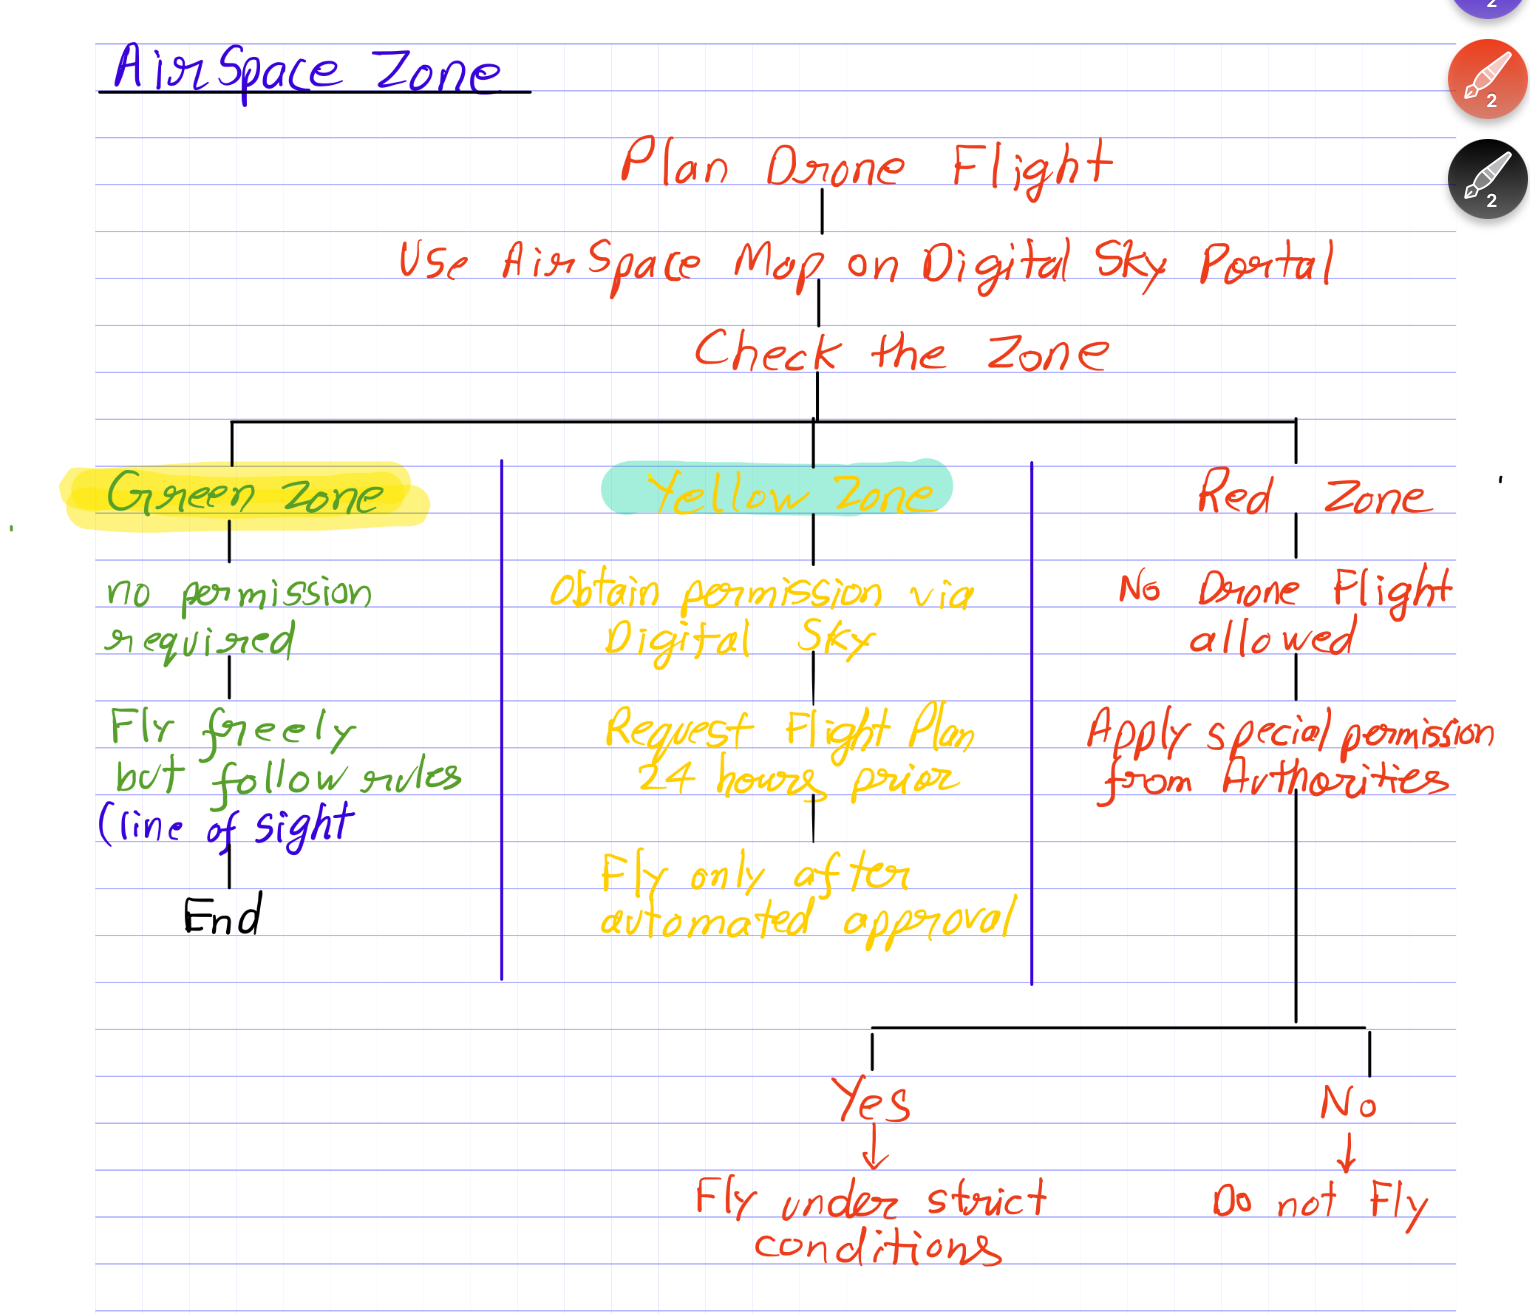 AirSpace Zone
Plan Drone Flight
Use AirSpace Map on Digital Sky Portal
Check the Zone
Green Zone
no permission
required
Fly freely
but follow rules
(line of sight
End
Yellow Zone
Obtain permission via
Digital Sky
Request Flight Plan
24 hours prior
Fly only after
automated approval
Red Zone
No Drone Flight
allowed
Apply special permission
from Authorities
Yes
Fly under strict
conditions
No
Do not Fly
2
2
2